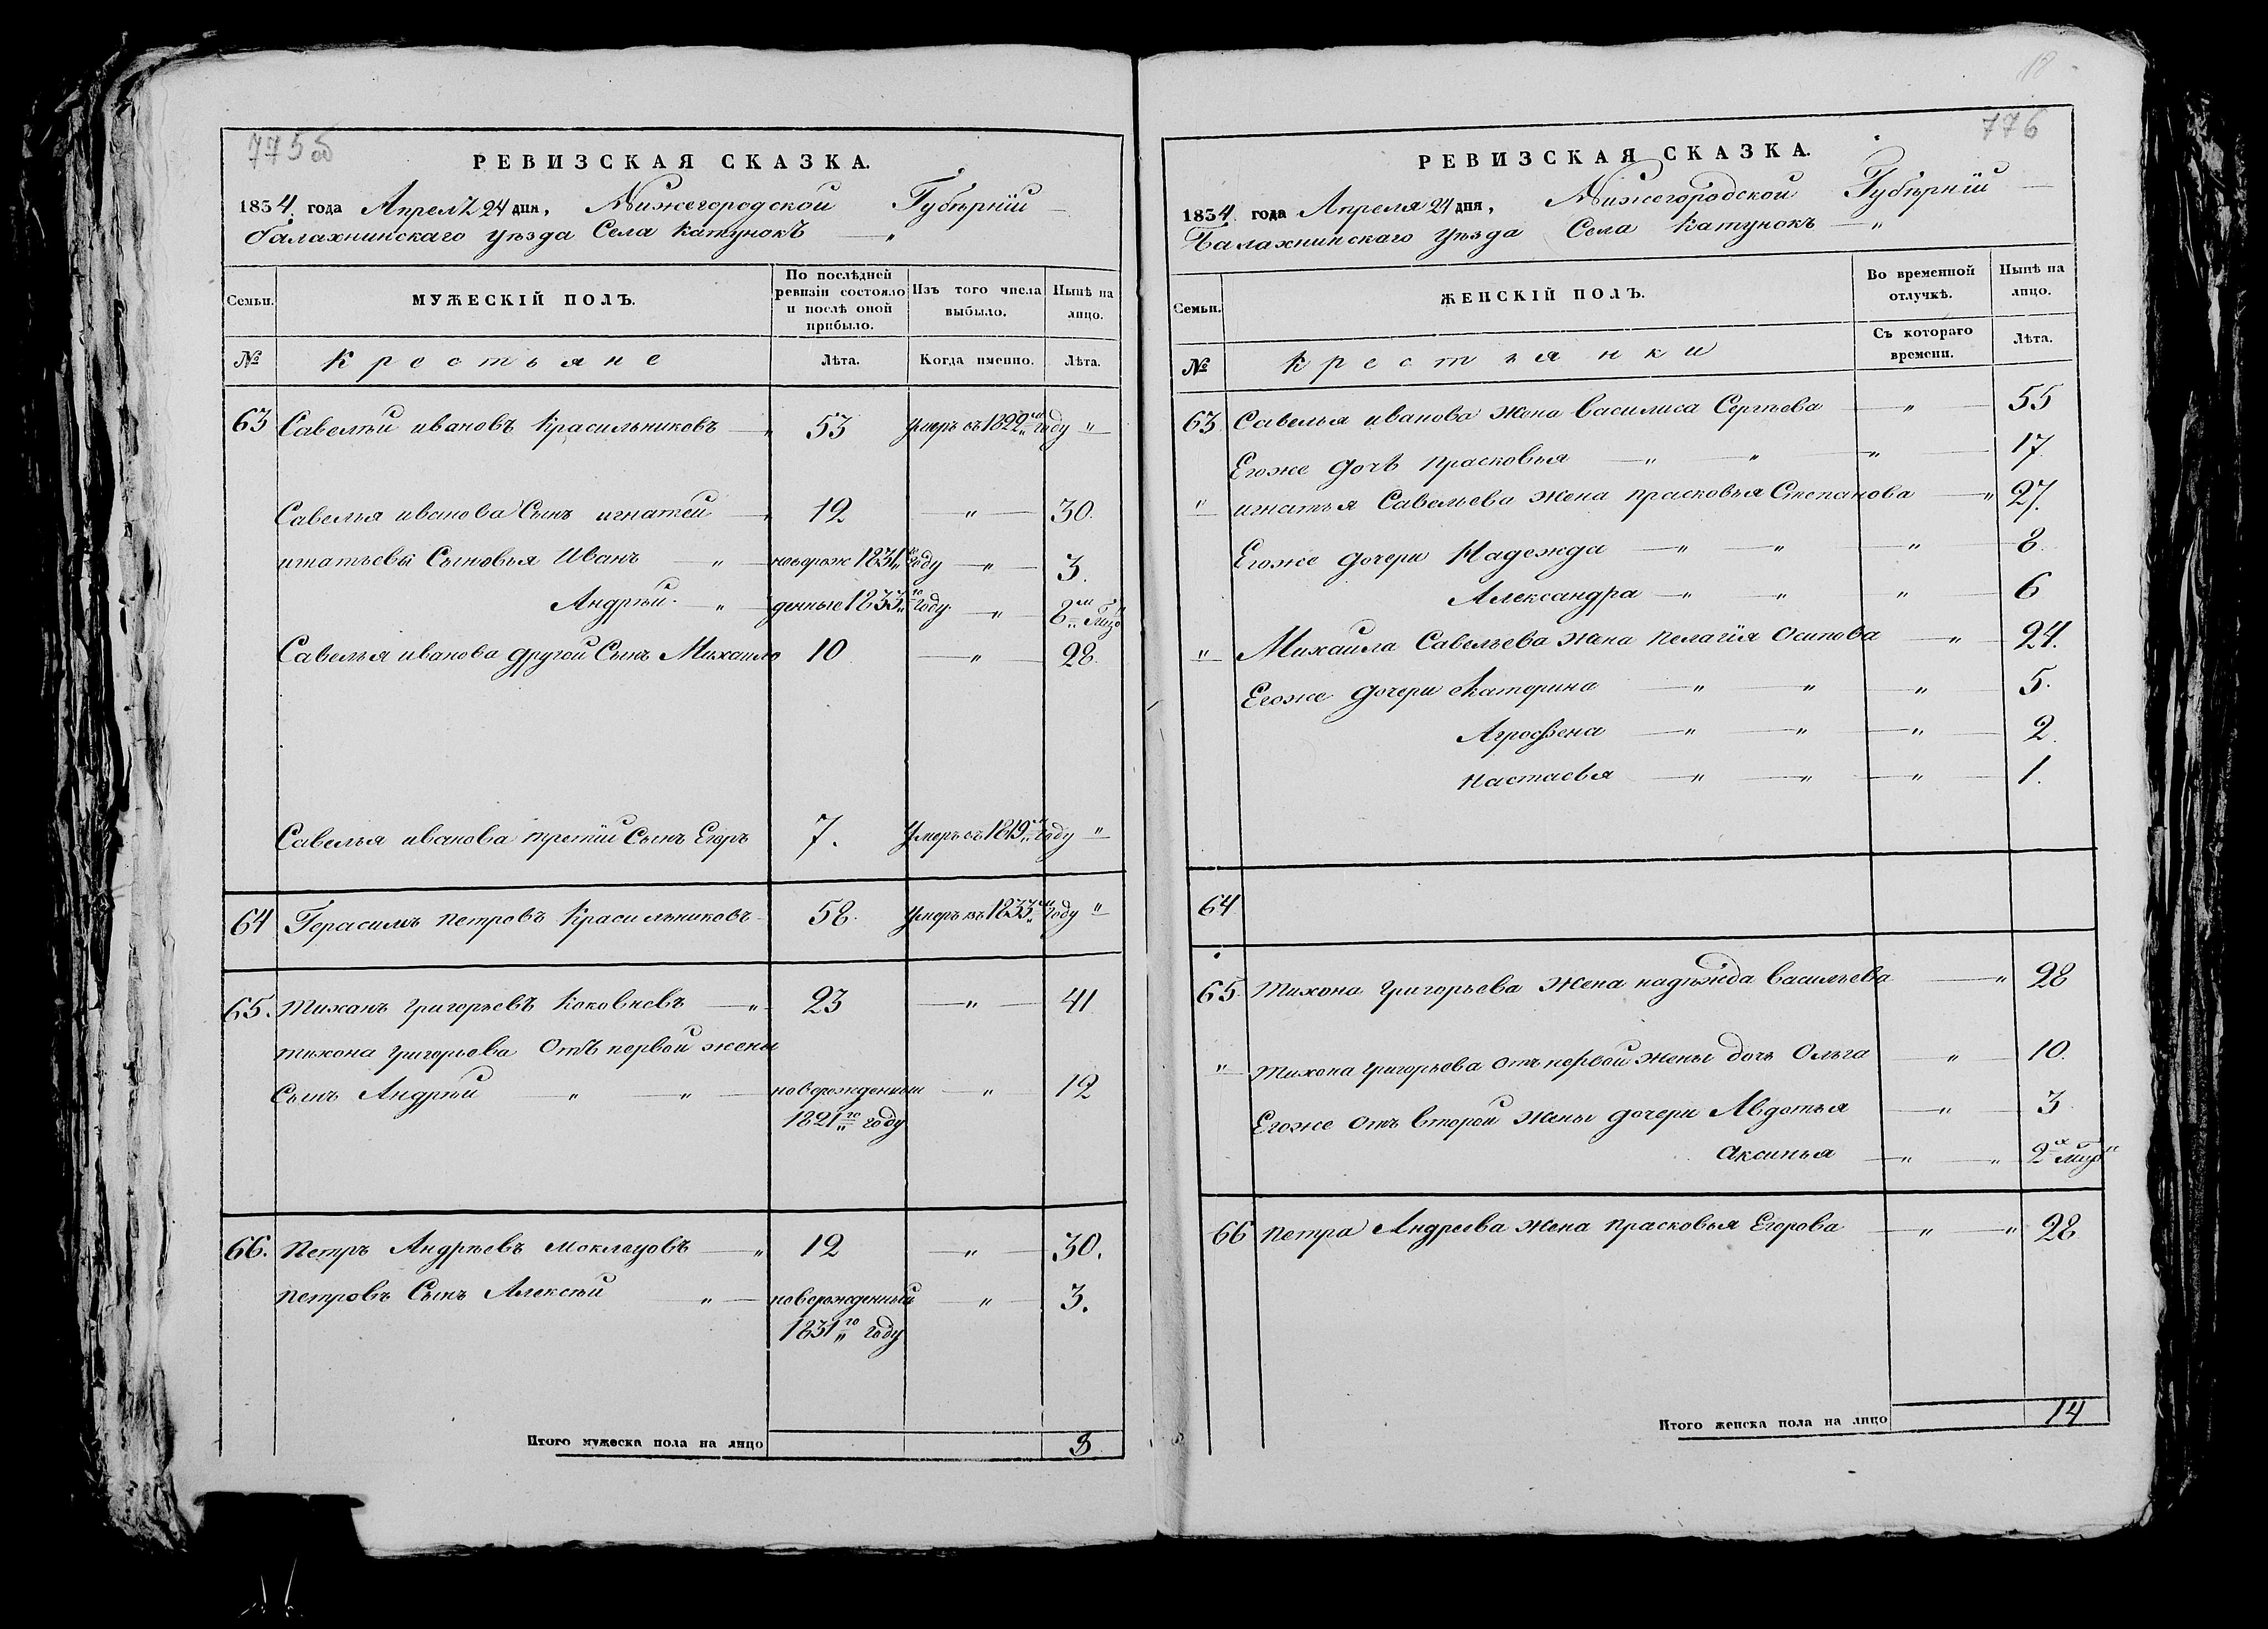 775об
РЕВИЗСКАЯ СКАЗКА.
1834. года Апрелѣ 24 дня, Нижегородской Губѣрніи
балахнинскаго уѣзда Села катунокъ — „
Семьи. МУЖЕСКІЙ ПОЛЪ. По послѣдней ревизіи состояло и послѣ оной прибыло. Изъ того числа выбыло. Нынѣ на лицо.
№ Крестьяне Лѣта. Когда именно. Лѣта.
63 Савелѣй ивановъ Красильниковъ — „ 53 умеръ въ 1822мъ году „
Савелья иванова Сынъ игнатей — „ 12 — „ — 30.
игнатьевы Сыновья Иванъ — „ — новорож 1831го году — „ — 3.
Андрѣй. — „ — денные 1833го году. — „ — 8ми мцо
Савелья иванова другой Сынъ Михаило 10 — „ — 28.
Савелья иванова третій Сынъ Егоръ 7. Умеръ въ 1819мъ году „
64 Герасимъ петровъ Красильниковъ 58. умеръ въ 1833мъ году „
65. тиханъ григорьевъ Коковневъ — „ 23 — „ — 41
тихона григорьева Отъ первой жены
Сынъ Андрѣй „ — „ — новорожденный — „ — 12
1821го году
66. Петръ Андрѣевъ моклецовъ — „ 12 — „ — 30.
петровъ Сынъ Алексѣй „ — новорожденный — „ — 3.
1831го году
Итого мужеска пола на лицо 3
18
776
РЕВИЗСКАЯ СКАЗКА.
1834. года Апреля 24 дня, Нижегородской Губѣрніи —
Балахнинскаго уѣзда Села Катунокъ — „
Семьи. ЖЕНСКІЙ ПОЛЪ. Во временной отлучкѣ. Нынѣ на лицо.
№ крестьянки Съ котораго времени. Лѣта.
63 Савелья иванова жена Василиса Сергѣева — „ — 55
Егоже дочь прасковья — „ — „ — „ — 17.
„ игнатья Савельева жена прасковья Степанова — „ 27.
Егоже дочери Надежда — „ — „ — „ — 8.
Александра — „ — „ — „ — 6
„ Михаила Савельева жена пелагія Осипова — „ — 24.
Егоже дочери Катерина — „ — „ — „ — 5.
Агрофена — „ — „ — „ — 2.
настасья — „ — „ — „ — 1.
64
65. тихона григорьева жена надѣжда васильева — „ 28
„ тихона григорьева отъ первой жены дочь Ольга — „ — 10.
Егоже отъ второй жены дочери Авдотья — „ — 3.
Аксинья — „ — „ 2хъ мцо
66 петра Андреева жена прасковья Егорова — „ — „ 28
Итого женска пола на лицо 14